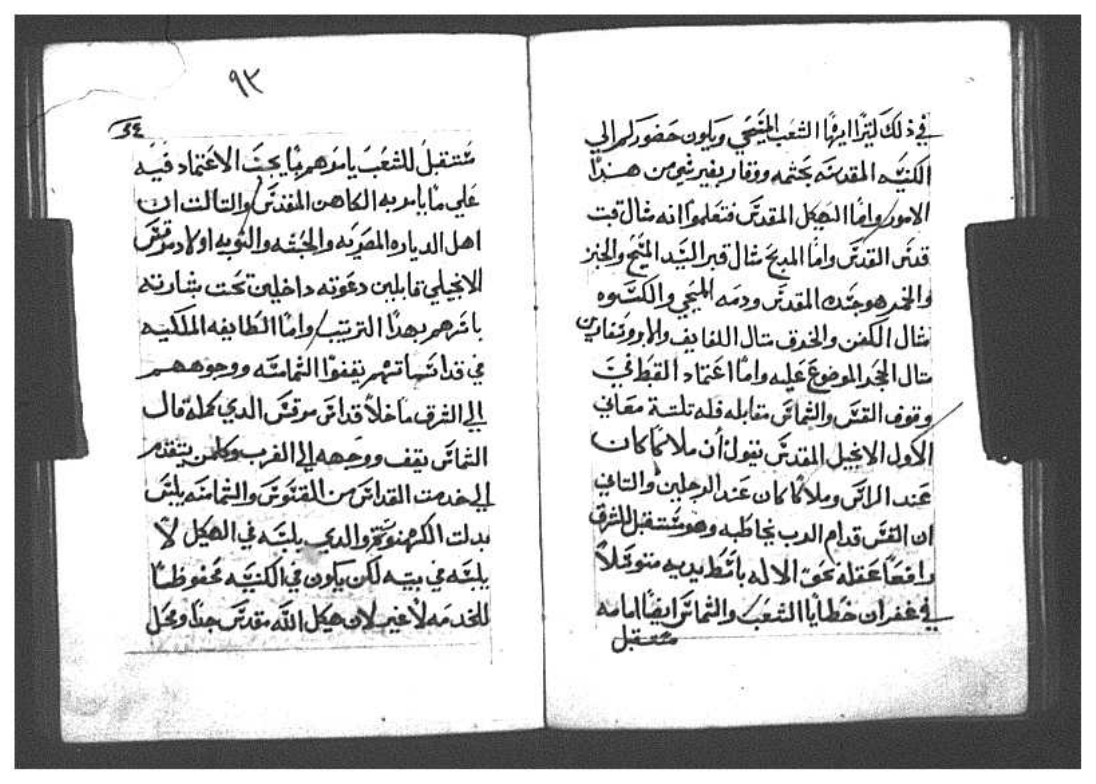 في ذلك ليتراايوا ايها الشعب المسيحي ويكون حضوركم الي
الكنيسه المقدسه بحشمه ووقار بغير شي من هذا
الامور واما الهيكل المقدس فتعلموا انه مثال قبت
قدس القدس واما المدبح مثال قبر السيد المسيح والخبز
والخمر هو جسده المقدس ودمه المسيحي والكسوه
مثال الكفن والخرق مثال اللفايف والابروسفارين
مثال الحجر الموضوع عليه واما اعتماد القبط في
وقوف القس والشماس مقابله فله تلتة معاني
الاول الانجيل المقدس يقول أن ملاكا كان
عند الراس وملاكا كان عند الرجلين والتاني
ان القس قدام الرب يخاطبه وهو مستقبل للشرق
رافعا عقله نحو الاله باسط يديه متوسلاً
في غفران خطايا الشعب والشماس ايضا امامه
مستقبل
٩٣
مستقبل للشعب يامرهم بما يجب الاعتماد فيه
علي ما يامر به الكاهن المقدس والتالت ان
اهل الدياره المصريه والحبشه والنوبه اولاد مرقس
الانجيلي قابلين دعوته داخلين تحت بشارته
باسرهم بهذا الترتيب واما الطايفه الملكيه
في قداساتهم يقفوا الشمامسه ووجوههم
الي الشرق ماخلا قداس مرقس الدي كمله قال
الشماس يقف ووجهه الي الغرب وكلمن يتقدم
الي خدمت القداس من القسوس والشمامسه يلبس
بدلت الكهنوت والدي يلبسه في الهيكل لا
يلبسه في بيته لكن يكون في الكنيسه محفوظا
للخدمه لا غير لان هيكل الله مقدس جدا ومحل